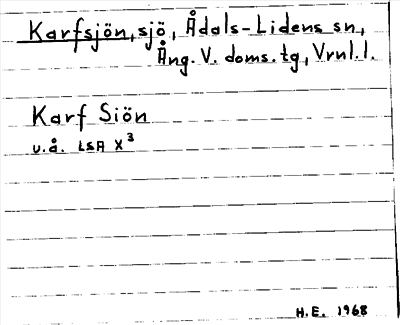 Karfsjön, sjö, Ådals-Lidens sn.,
Ång. V. doms. tg., Vrnl. l.
Karf Siön
u.å. LSA X³
H.E. 1968